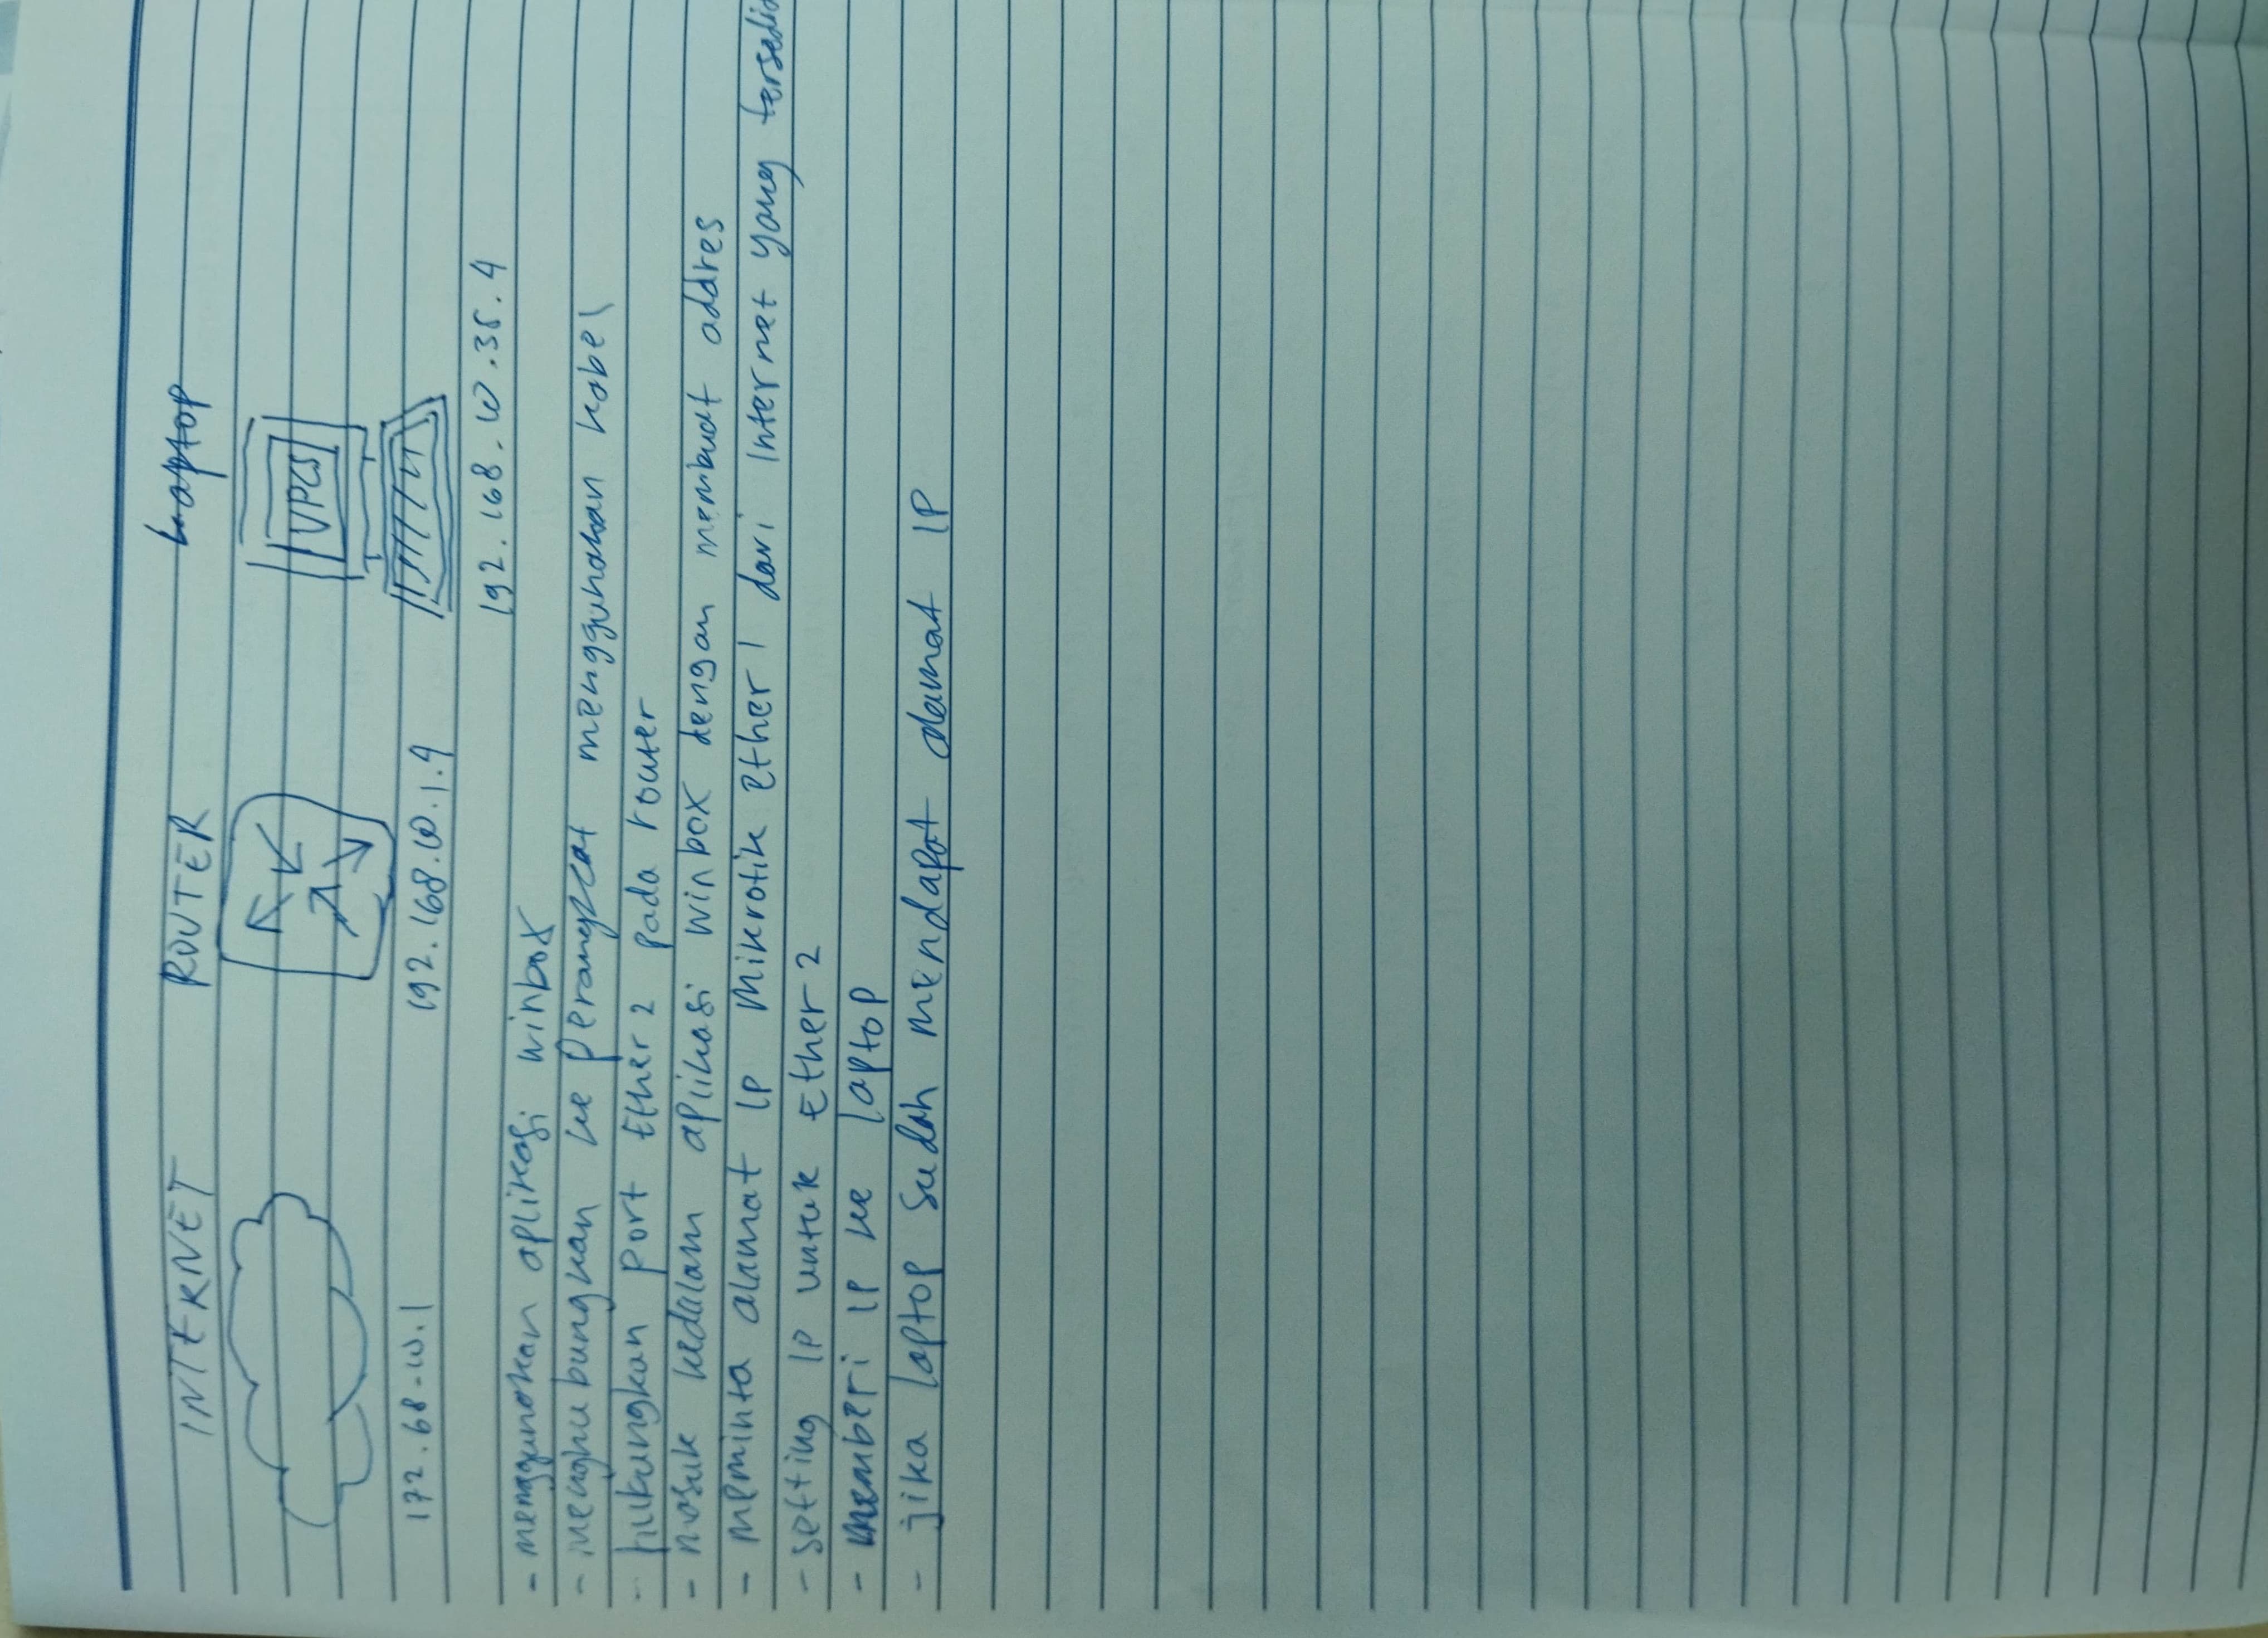 INTERNET ROUTER Laptop
VPCS
172.68.10.1 192.168.10.1.4
192.168.10.35.4
- menggunakan aplikasi winbox
- menghubungkan ke perangkat menggunakan kabel
- hubungkan port Ether 2 pada router
- masuk kedalam aplikasi winbox dengan membuat addres
- meminta alamat IP Mikrotik ether 1 dari Internet yang tersedia
- setting IP untuk Ether 2
- memberi IP ke laptop
- jika laptop sudah mendapat alamat IP